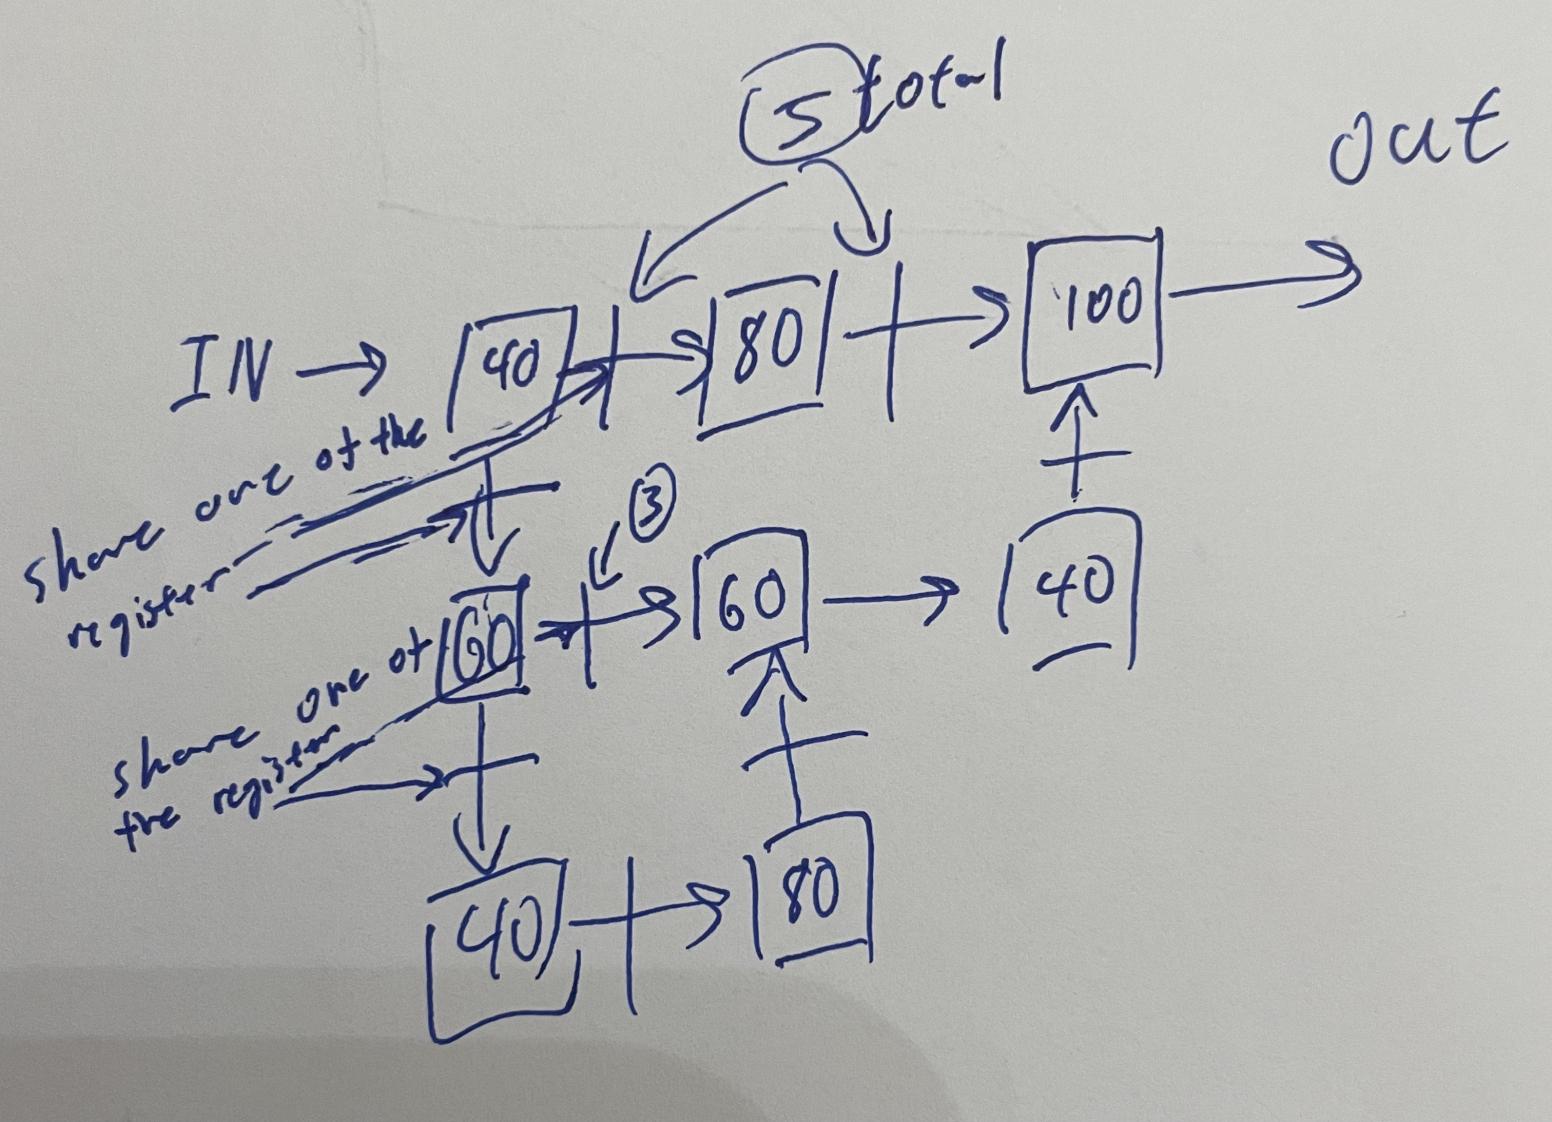 5 total
out
IN → 40 80 100
share one of the
register
3
60 60 40
share one of
the register
40 80